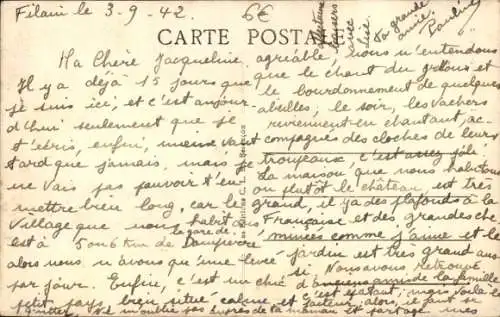 Filain le 3-9-42. 6€
CARTE POSTALE
Ma Chère Jacqueline
Il y a déjà 15 jours que
je suis ici, et c'est aujour-
d'hui seulement que je
t'écris, enfin, mieux vaut
tard que jamais, mais je
ne vais pas pouvoir t'en
mettre bien long, car le
village que nous habitons
est à 5 ou 6 km de Dampierre
la gare de
alors nous n'avons qu'une levée
par jour. Enfin, c'est un chic
petit pays bien situé calme et
agréable, nous n'entendons
que le chant du grillons et
le bourdonnement de quelques
abeilles; le soir, les vachers
reviennent en chantant, ac-
compagnés des cloches de leurs
troupeaux, c'est assez joli.
La maison que nous habitons
ou plutôt le château, est très
grand, il y a des plafonds à la
Française et des grandes che
minées comme j'aime et le
jardin est très grand aussi
Nous avons retrouvé
d'anciens amis de la famille
c'est épatant; mais voilà le
facteur, alors, il faut se
quitter. N'oublie pas auprès de ta maman et partage mes
affectueux
baisers
avec
Ta grande
amie.
Pauline